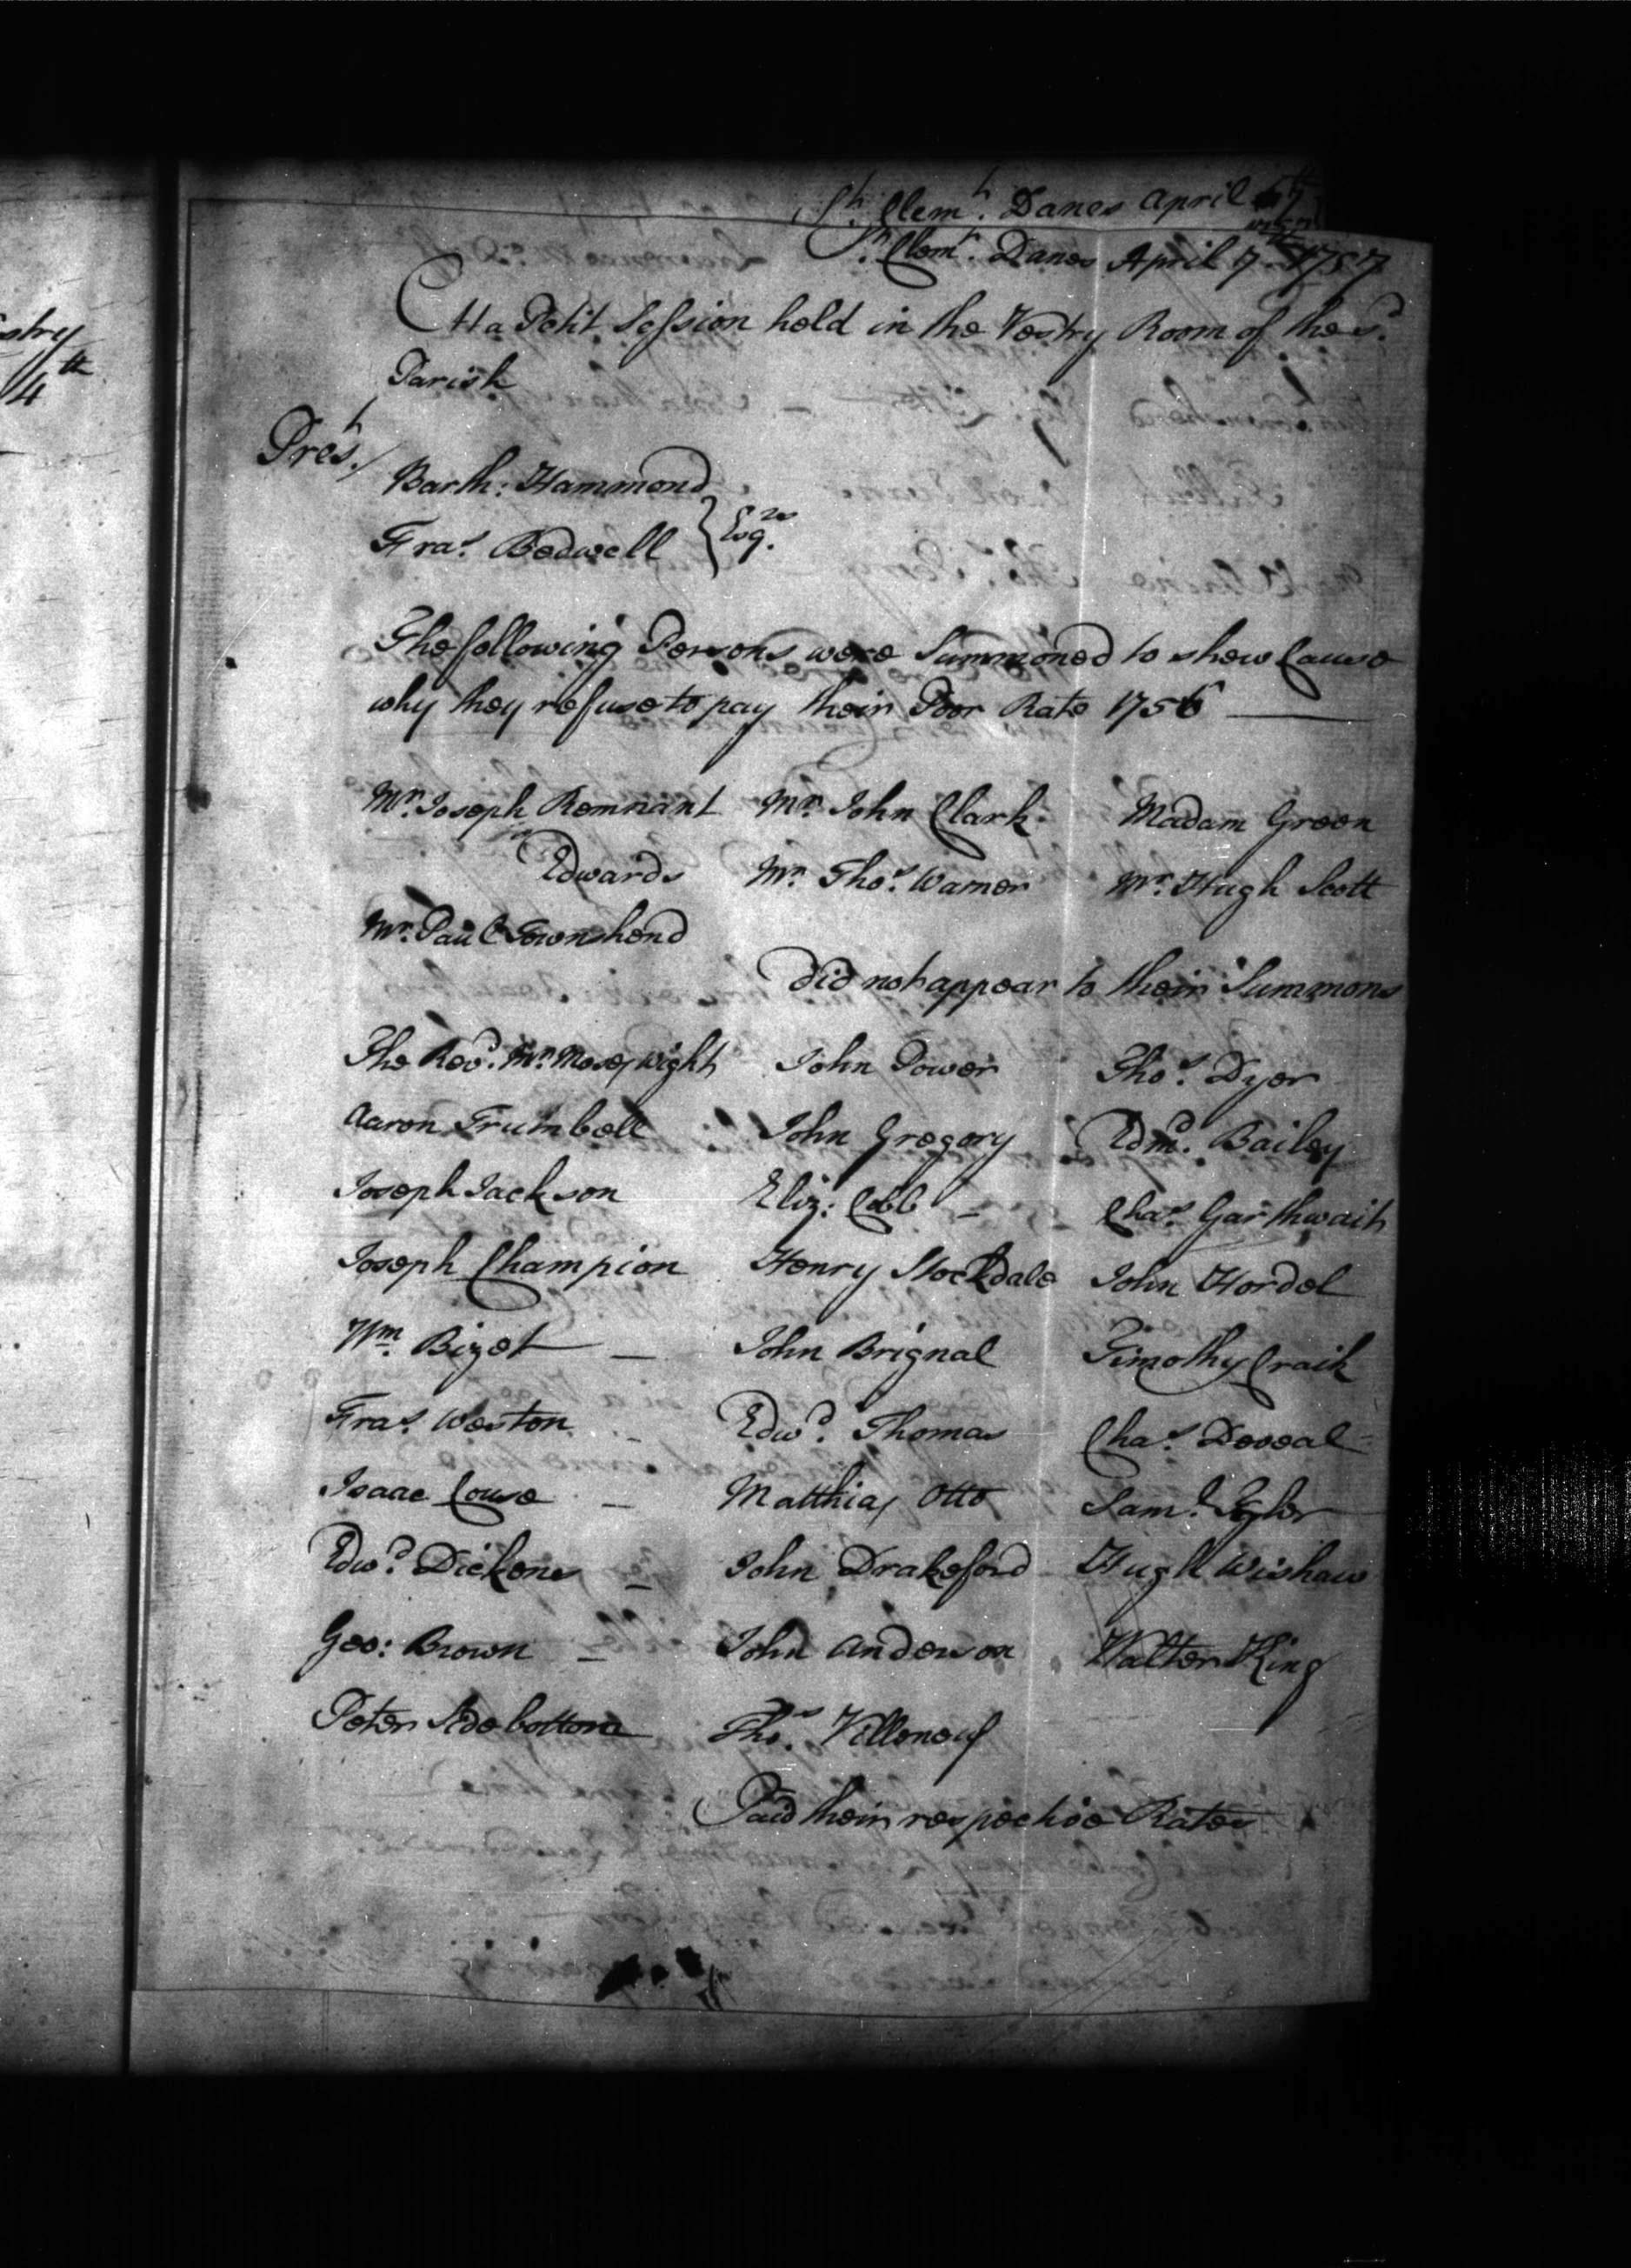 stry
4th
St. Clemt. Danes April
St. Clemt. Danes April 7th 1757
At a Petit Session held in the Vestry Room of the sd.
Parish
Prest.
Barth: Hammond
Fras. Bedwell } Esqrs.
The following Persons were Summoned to shew Cause
why they refuse to pay their Poor Rate 1756
Mr. Joseph Remnant Mr. John Clark Madam Green
Edwards Mr. Thos. Warner Mr. Hugh Scott
Mr. Paul Townshend
Did not appear to their Summons
The Revd. Mr. Moses Wight John Power Thos. Dyer
Aaron Trumbell John Gregory Edmd. Bailey
Joseph Jackson Eliz: Cobb - Chas. Garthwait
Joseph Champion Henry Stockdale John Hordel
Wm. Bizet - John Brignal Timothy Craik
Fras. Weston - Edwd. Thomas Chas. Deveal
Isaac Couse - Matthias Otto Saml.
Edwd. Dickens - John Drakeford Hugh Wishaw
Geo: Brown - John Anderson Walter King
Peter Sidebottom Thos. Villeneuf
Paid their respective Rates